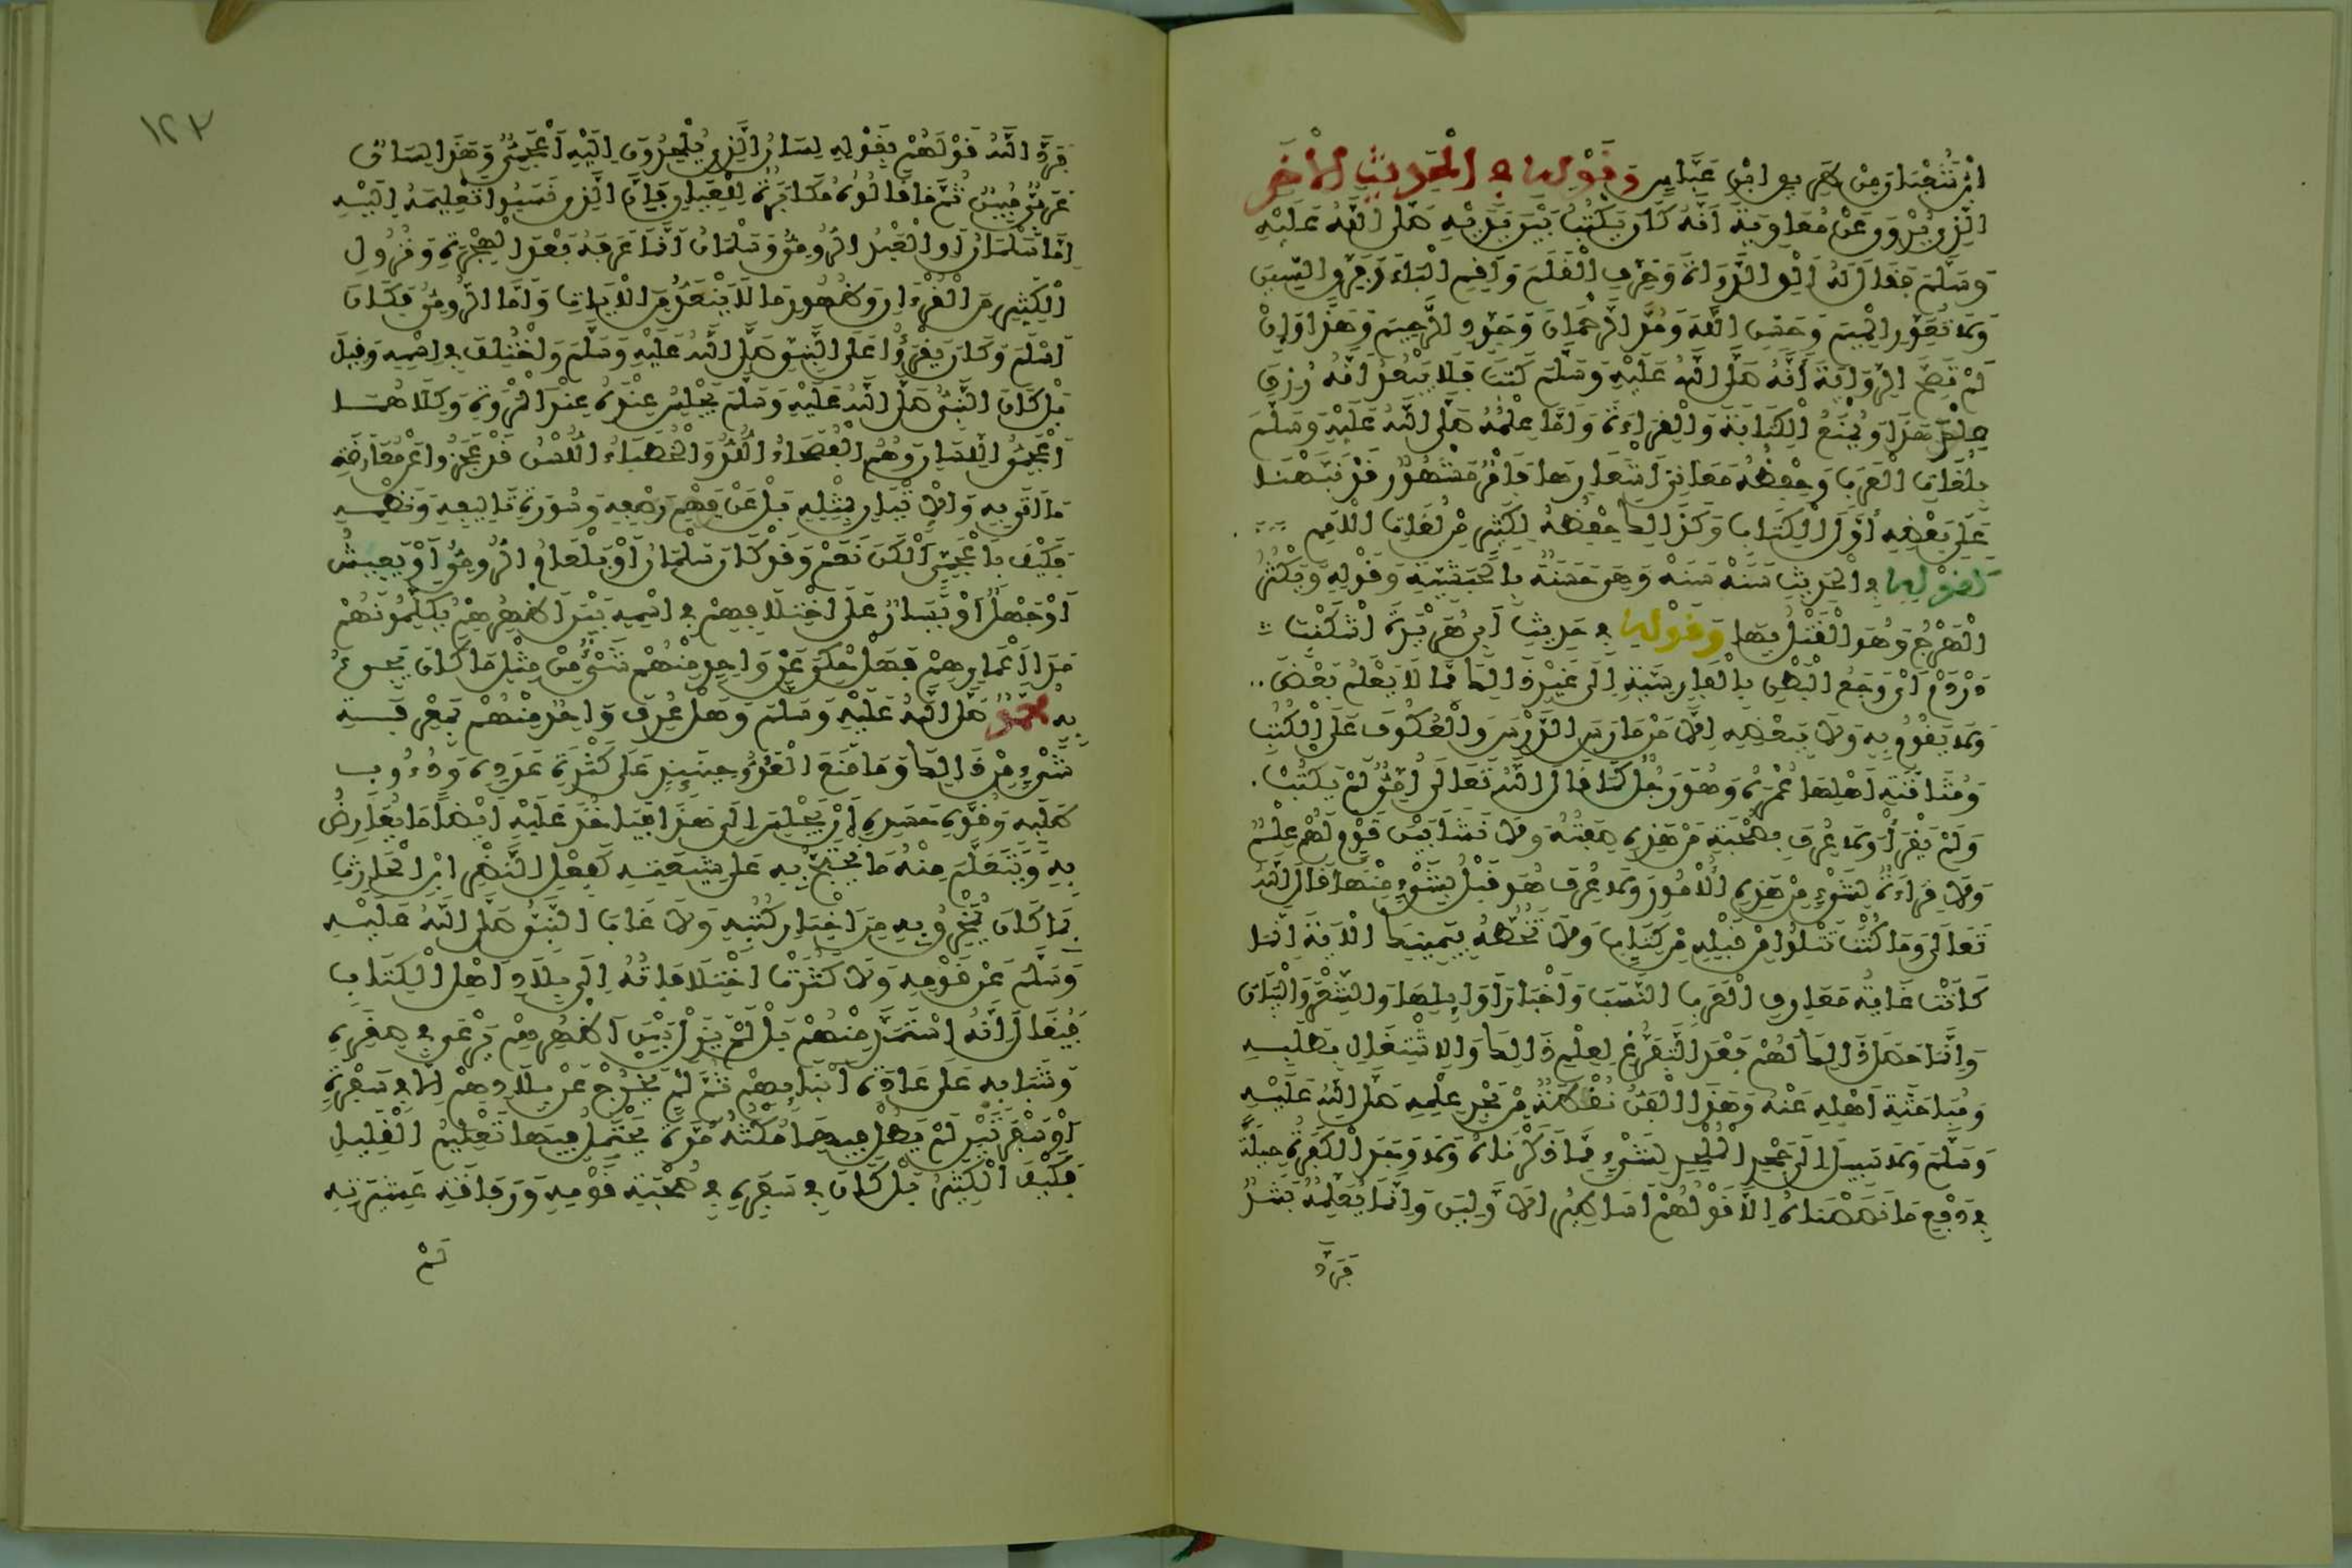 ابْنُ شَعْبَانَ مِنْ طَرِيقِ ابْنِ عَبَّاسٍ وَقَوْلِهِ فِي الْحَدِيثِ الْآخَرِ
الَّذِي يُرْوَى عَنْ مُعَاوِيَةَ أَنَّهُ كَانَ يَكْتُبُ بَيْنَ يَدَيْهِ صَلَّى اللَّهُ عَلَيْهِ
وَسَلَّمَ فَقَالَ لَهُ أَلِقِ الدَّوَاةَ وَحَرِّفِ الْقَلَمَ وَأَقِمِ الْبَاءَ وَفَرِّقِ السِّينَ
وَلَا تُعَوِّرِ الْمِيمَ وَحَسِّنِ اللَّهَ وَمُدَّ الرَّحْمَانَ وَجَوِّدِ الرَّحِيمَ وَهَذَا وَإِنْ
لَمْ تَصِحَّ الرِّوَايَةُ أَنَّهُ صَلَّى اللَّهُ عَلَيْهِ وَسَلَّمَ كَتَبَ فَلَا يَبْعُدُ أَنَّهُ رُزِقَ
عِلْمَ هَذَا وَيُمْنَعُ الْكِتَابَةَ وَالْقِرَاءَةَ وَأَمَّا عِلْمُهُ صَلَّى اللَّهُ عَلَيْهِ وَسَلَّمَ
بِلُغَاتِ الْعَرَبِ وَحِفْظُهُ مَعَانِيَ أَشْعَارِهَا فَأَمْرٌ مَشْهُورٌ قَدْ نَبَّهْنَا
عَلَى بَعْضِهِ أَوَّلَ الْكِتَابِ وَكَذَالِكَ حِفْظُهُ لِكَثِيرٍ مِنْ لُغَاتِ الْأُمَمِ
كَقَوْلِهِ فِي الْحَدِيثِ سَنَهْ سَنَهْ وَهِيَ حَسَنَةٌ بِالْحَبَشِيَّةِ وَقَوْلِهِ وَيَكْثُرُ
الْهَرْجُ وَهُوَ الْقَتْلُ بِهَا وَقَوْلِهِ فِي حَدِيثِ أَبِي هُرَيْرَةَ أَشْكَنْبَ
دَرْدَمْ أَيْ وَجَعُ الْبَطْنِ بِالْفَارِسِيَّةِ إِلَى غَيْرِ ذَالِكَ مِمَّا لَا يَعْلَمُ بَعْضَ
وَلَا يَقُومُ بِهِ وَلَا بِبَعْضِهِ إِلَّا مَنْ مَارَسَ الدَّرْسَ وَالْعُكُوفَ عَلَى الْكُتُبِ
وَمُثَافَنَةِ أَهْلِهَا عُمْرَهُ وَهُوَ رَجُلٌ كَمَا قَالَ اللَّهُ تَعَالَى أُمِّيٌّ لَمْ يَكْتُبْ
وَلَمْ يَقْرَأْ وَلَا عُرِفَ بِصُحْبَةِ مَنْ هَذِهِ صِفَتُهُ وَلَا نَشَأَ بَيْنَ قَوْمٍ لَهُمْ عِلْمٌ
وَلَا قِرَاءَةٌ لِشَيْءٍ مِنْ هَذِهِ الْأُمُورِ وَلَا عُرِفَ هُوَ قَبْلُ بِشَيْءٍ مِنْهَا قَالَ اللَّهُ
تَعَالَى وَمَا كُنْتَ تَتْلُوا مِنْ قَبْلِهِ مِنْ كِتَابٍ وَلَا تَخُطُّهُ بِيَمِينِكَ الْآيَةَ إِنَّمَا
كَانَتْ غَايَةُ مَعَارِفِ الْعَرَبِ النَّسَبَ وَأَخْبَارَ أَوَائِلِهَا وَالشِّعْرَ وَالْبَيَانَ
وَإِنَّمَا حَصَلَ ذَالِكَ لَهُمْ بَعْدَ التَّفَرُّغِ لِعِلْمِ ذَالِكَ وَالِاشْتِغَالِ بِطَلَبِهِ
وَمُبَاحَثَةِ أَهْلِهِ عَنْهُ وَهَذَا الْفَنُّ نُقْطَةٌ مِنْ بَحْرِ عِلْمِهِ صَلَّى اللَّهُ عَلَيْهِ
وَسَلَّمَ وَلَا سَبِيلَ إِلَى جَحْدِ الْمُلْحِدِ لِشَيْءٍ مِمَّا ذَكَرْنَاهُ وَلَا وَجَدَ الْكَفَرَةُ حِيلَةً
فِي دَفْعِ مَا نَصَصْنَاهُ إِلَّا قَوْلُهُمْ أَسَاطِيرُ الْأَوَّلِينَ وَإِنَّمَا يُعَلِّمُهُ بَشَرٌ
فَرَدَّ
١٢٣
فَرَدَّ اللَّهُ قَوْلَهُمْ بِقَوْلِهِ لِسَانُ الَّذِي يُلْحِدُونَ إِلَيْهِ أَعْجَمِيٌّ وَهَذَا لِسَانٌ
عَرَبِيٌّ مُبِينٌ ثُمَّ مَا قَالُوهُ مُكَابَرَةُ الْعِيَانِ فَإِنَّ الَّذِي نَسَبُوا تَعْلِيمَهُ إِلَيْهِ
إِمَّا سَلْمَانُ أَوِ الْعَبْدُ الرُّومِيُّ وَسَلْمَانُ إِنَّمَا عَرَفَهُ بَعْدَ الْهِجْرَةِ وَنُزُولِ
الْكَثِيرِ مِنَ الْقُرْءَانِ وَظُهُورِ مَا لَا يَنْعَدُّ مِنَ الْآيَاتِ وَأَمَّا الرُّومِيُّ فَكَانَ
أَسْلَمَ وَكَانَ يَقْرَأُ عَلَى النَّبِيِّ صَلَّى اللَّهُ عَلَيْهِ وَسَلَّمَ وَاخْتُلِفَ فِي اسْمِهِ وَقِيلَ
بَلْ كَانَ النَّبِيُّ صَلَّى اللَّهُ عَلَيْهِ وَسَلَّمَ يَجْلِسُ عِنْدَهُ عِنْدَ الْمَرْوَةِ وَكِلَاهُمَا
أَعْجَمِيُّ اللِّسَانِ وَهُمُ الْفُصَحَاءُ اللُّدُّ وَالْخُطَبَاءُ اللُّسْنُ قَدْ عَجَزُوا عَنْ مُعَارَضَةِ
مَا أَتَى بِهِ وَالْإِتْيَانِ بِمِثْلِهِ بَلْ عَنْ فَهْمِ رَصْفِهِ وَصُورَةِ تَالِيفِهِ وَنَظْمِهِ
فَكَيْفَ بِأَعْجَمِيٍّ أَلْكَنَ نَعَمْ وَقَدْ كَانَ سَلْمَانُ أَوْ بَلْعَامُ الرُّومِيُّ أَوْ يَعِيشُ
أَوْ جَبْرٌ أَوْ يَسَارٌ عَلَى اخْتِلَافِهِمْ فِي اسْمِهِ بَيْنَ أَظْهُرِهِمْ يُكَلِّمُونَهُمْ
مَدَى أَعْمَارِهِمْ فَهَلْ حُكِيَ عَنْ وَاحِدٍ مِنْهُمْ شَيْءٌ مِنْ مِثْلِ مَا كَانَ يَجِيءُ
بِهِ مُحَمَّدٌ صَلَّى اللَّهُ عَلَيْهِ وَسَلَّمَ وَهَلْ عُرِفَ وَاحِدٌ مِنْهُمْ بِمَعْرِفَةِ
شَيْءٍ مِنْ ذَالِكَ وَمَا مَنَعَ الْعَدُوَّ حِينَئِذٍ عَلَى كَثْرَةِ عَدَدِهِ وَدُءُوبِ
طَلَبِهِ وَقُوَّةِ حَسَدِهِ أَنْ يَجْلِسَ إِلَى هَذَا فَيَأْخُذَ عَلَيْهِ أَيْضًا مَا يُعَارِضُ
بِهِ وَيَتَعَلَّمَ مِنْهُ مَا يَحْتَجُّ بِهِ عَلَى شِيعَتِهِ كَفِعْلِ النَّضْرِ ابْنِ الْحَارِثِ
بِمَا كَانَ يُمَخْرِقُ بِهِ مِنْ أَخْبَارِ كُتُبِهِ وَلَا غَابَ النَّبِيُّ صَلَّى اللَّهُ عَلَيْهِ
وَسَلَّمَ عَنْ قَوْمِهِ وَلَا كَثُرَتِ اخْتِلَافَاتُهُ إِلَى بِلَادِ أَهْلِ الْكِتَابِ
فَيُقَالَ إِنَّهُ اسْتَمَدَّ مِنْهُمْ بَلْ لَمْ يَزَلْ بَيْنَ أَظْهُرِهِمْ يَرْعَى فِي صِغَرِهِ
وَشَبَابِهِ عَلَى عَادَةِ أَنْبِيَائِهِمْ ثُمَّ لَمْ يَخْرُجْ عَنْ بِلَادِهِمْ إِلَّا فِي سَفْرَةٍ
أَوْ سَفْرَتَيْنِ لَمْ يَطُلْ فِيهِمَا مُكْثُهُ مُدَّةً يَحْتَمِلُ فِيهَا تَعْلِيمُ الْقَلِيلِ
فَكَيْفَ الْكَثِيرُ بَلْ كَانَ فِي سَفَرِهِ فِي صُحْبَةِ قَوْمِهِ وَرَفَاقَةِ عَشِيرَتِهِ
لَمْ